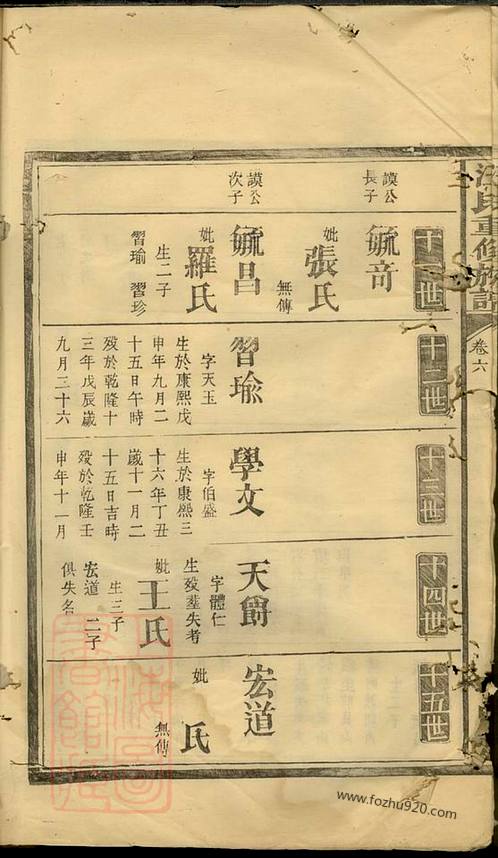 氏重修族譜
卷六
十一世
謨公
長子
毓奇
妣張氏
無傳
謨公
次子
毓昌
妣羅氏
生二子
習瑜 習珍
十二世
習瑜
字天玉
生於康熙戊
申年九月二
十五日午時
歿於乾隆十
三年戊辰歲
九月三十六
十三世
學文
字伯盛
生於康熙三
十六年丁丑
歲十一月二
十五日吉時
歿於乾隆壬
申年十一月
十四世
天爵
字體仁
生歿塟失考
妣王氏
生三子
宏道 二子
俱失名
十五世
宏道
妣 氏
無傳
www.fozhu920.com